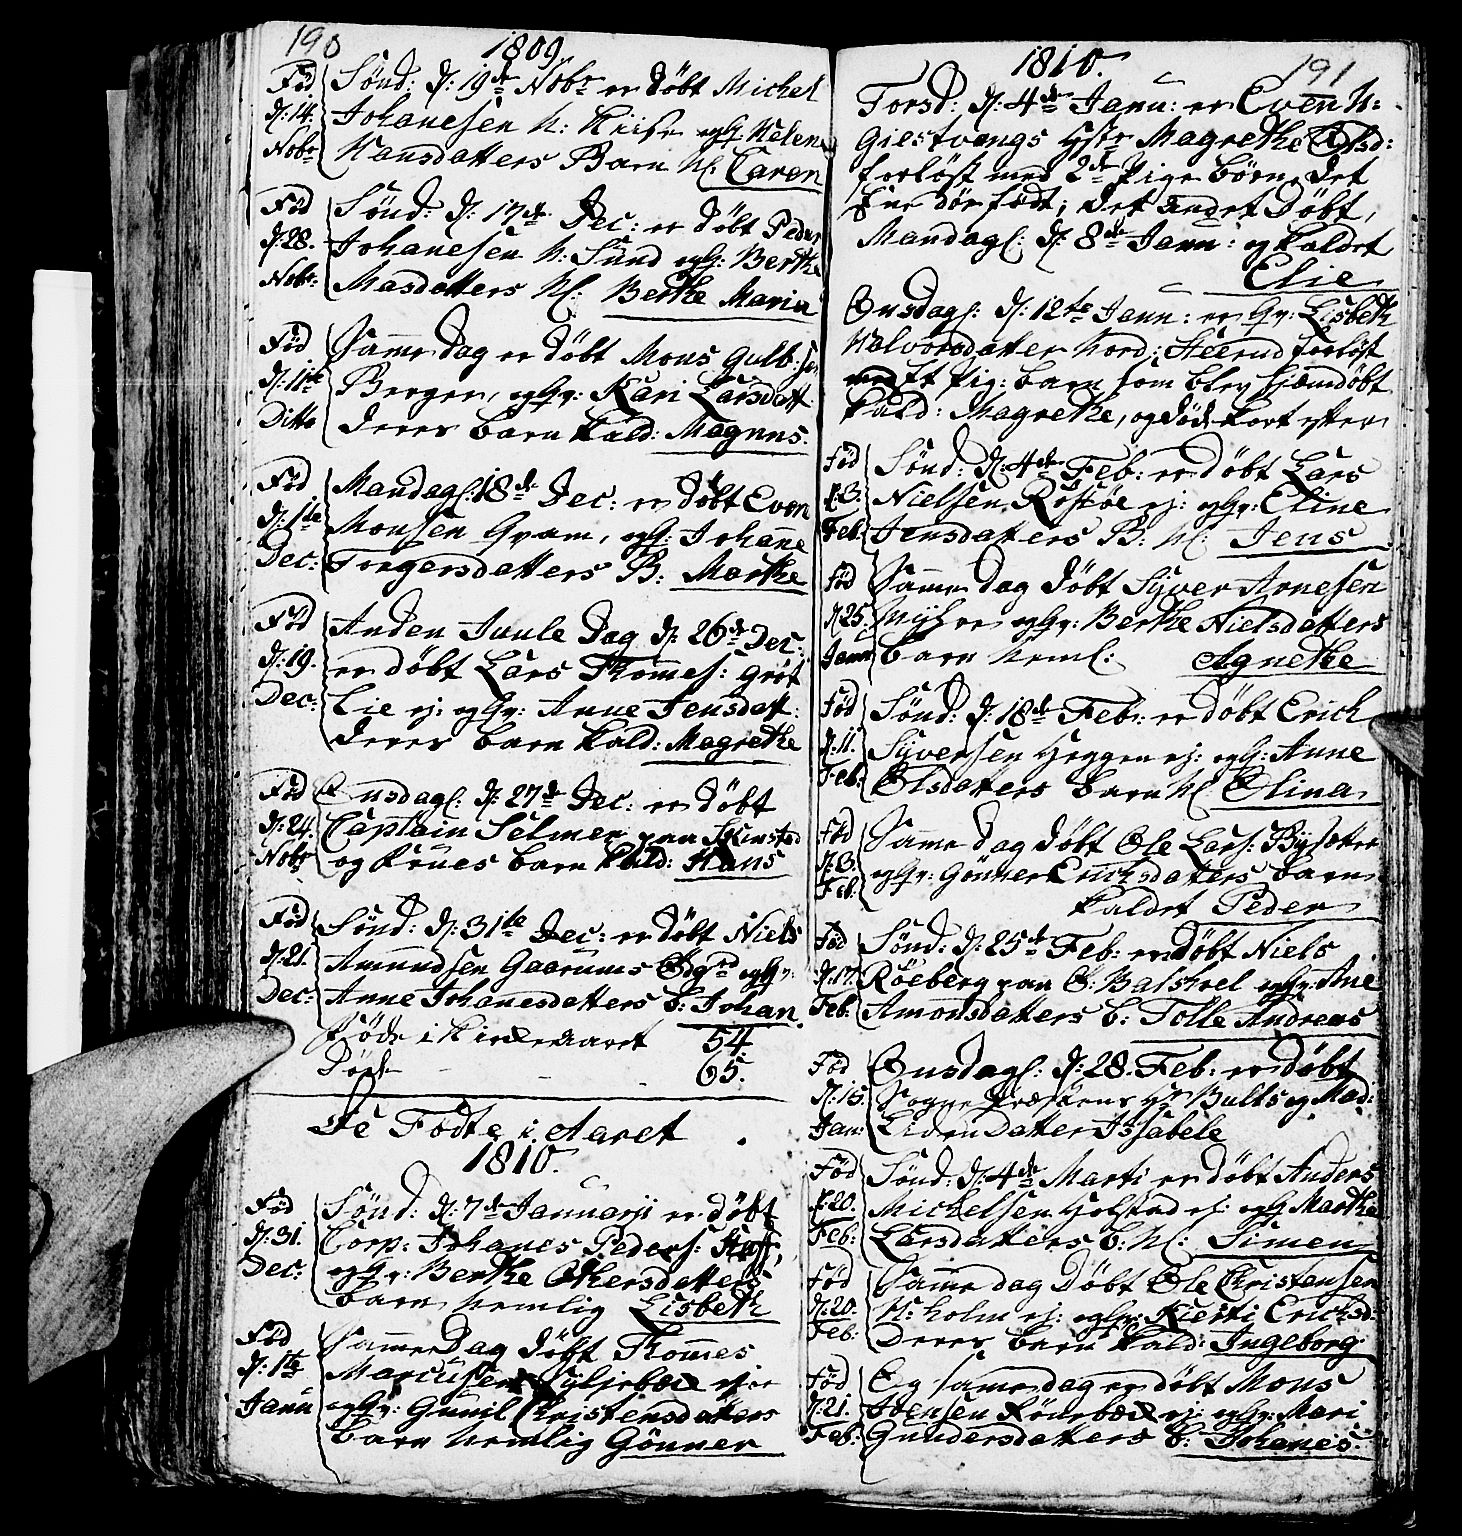 190
1809
Fød
d: 14.
Nobr
Sønd: d: 19de Nobr er døbt Michel
Johanesen N: Kiise og H: Helene
Hansdatters Barn N: Caren
Fød
d: 28.
Nobr:
Sønd: d: 17de Dec: er døbt Peder
Johanesen N: Sund og H: Berthe
Masdatters N: Berthe Maria
Fød
d: 11te
Ditto
Samme Dag er døbt Mons Gulb:
Bergen, og Hr: Kari Larsdatt
deres barn kald: Magnus.
Fød
d: 1te
Dec:
Mandag: 18de Dec: er døbt Even
Monsen Gram, og H: Johanne
Torgersdatters B: Marthe
Fød
d: 19.
Dec:
Anden Juule Dag d: 26de Dec:
er døbt Lars Thomes: Grøt
Lie ej: og Hr: Anne Jensdatt:
deres barn kald: Magrethe
Fød
d: 24.
Nobr
Onsdag: d: 27de Dec: er døbt
Captain Selmer paa
og Frues barn kald: Hans
Fød
d: 21.
Dec:
Sønd: d: 31te Dec: er døbt Niels
Amundsen Gaarums og Hr:
Anne Johanesdatters b: Johan
Føde i Kirkeaaret 54.
Døde - - - 65.
De Fødte i Aaret
1810.
Fød
d: 31.
Dec:
Sønd: d: 7de Januarji er døbt
Corp: Johanes Peders:
og Hr: Berthe Othersdatters
barn nemlig Lisbeth
Fød
d: 1te
Janu
Samme Dag døbt Thommes
Marcusen Syljebæk ejer
og Hr: Gunil Christensdatters
barn nemlig Gønner
1810.
191
Torsd: d: 4de Janu: er Even N:
Giestvangs Hstr Magrethe Olsd:
forløst med 2de Pige børn, det
Ene død født; det andet døbt,
Mandag: d: 8de Janu: og kaldet
Elie
Onsdag: d: 12te Janu: er Hr: Lisbeth
Halvorsdatter Nord: Steerud forløst
med Et Pig: barn som blev hjemdøbt
kald: Magrethe, og døde kort efter
Fød
d: 3.
Feb:
Sønd: d: 4de Feb: er døbt Lars
Nielsen Roskøe ej: og Hr: Eline
Jensdatters B: N: Jens
Fød
d: 25.
Janu
Samme dag døbt Syver Arnesen
og Hr: Berthe Nielsdatters
barn neml: Agnethe
Fød
d: 11.
Feb:
Sønd: d: 18de Feb: er døbt Erich
Syversen Heggen ej: og H: Anne
Olsdatters barn N: Olina
Fød
d: 3.
Feb:
Samme dag døbt Ole Lars: Bysæter
og Hr: Gønner Erichsdatters barn
kaldet Peder
Fød
d: 17.
Feb:
Sønd: d: 25de Feb: er døbt Niels
Røeberg paa O: Balshvel og Hr: Ane
Amonsdatters b: Tolle Andreas
Fød
d: 15.
Jan:
Onsdag: d: 28. Feb: er døbt
Sogne Præstens Hr Bulls og Mad:
Liden datter Issabele
Fød
d: 20.
Feb:
Sønd: d: 4de Marti er døbt Anders
Michelsen Holstad ej: og H Marthe
Larsdatters b: N: Simen
Fød
d: 20.
Feb:
Samme dag døbt Ole Christensen
N: Holm ej: og Hr: Kiersti Erichsd:
deres barn kald: Ingeborg
Fød
d: 21.
Feb:
Og samme dag er døbt Mons
Jensen Rønebæk ej: og Hr: Mari
Gundersdatters b: Johanes.